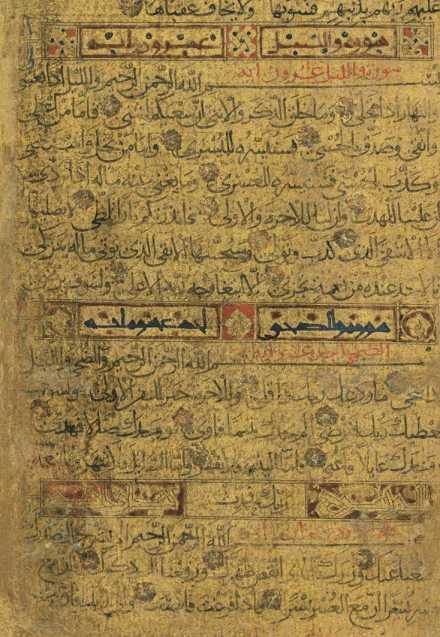 عليهم ربهم بذنبهم فسويها ولا يخاف عقباها
سورة والليل عشرون اية
سورة والليل عشرون اية
بسم الله الرحمن الرحيم والليل اذا يغشى
والنهار اذا تجلى وما خلق الذكر والانثى ان سعيكم لشتى فاما من اعطى
واتقى وصدق بالحسنى فسنيسره لليسرى واما من بخل واستغنى
وكذب بالحسنى فسنيسره للعسرى وما يغنى عنه ماله اذا تردى
ان علينا للهدى وان لنا للاخرة والاولى فانذرتكم نارا تلظى لا يصليها
الا الاشقى الذى كذب وتولى وسيجنبها الاتقى الذى يوتى ماله يتزكى
وما لاحد عنده من نعمة تجزى الا ابتغاء وجه ربه الاعلى ولسوف يرضى
سورة والضحى احدى عشرة اية
الضحى احدى عشرة اية
بسم الله الرحمن الرحيم والضحى والليل
اذا سجى ما ودعك ربك وما قلى وللاخرة خير لك من الاولى ولسوف
يعطيك ربك فترضى الم يجدك يتيما فاوى ووجدك ضالا فهدى
ووجدك عايلا فاغنى فاما اليتيم فلا تقهر واما السايل فلا تنهر واما بنعمة
ربك فحدث
بسم الله الرحمن الرحيم الم نشرح لك صدرك
ووضعنا عنك وزرك الذى انقض ظهرك ورفعنا لك ذكرك فان مع
العسر يسرا ان مع العسر يسرا فاذا فرغت فانصب والى ربك فارغب